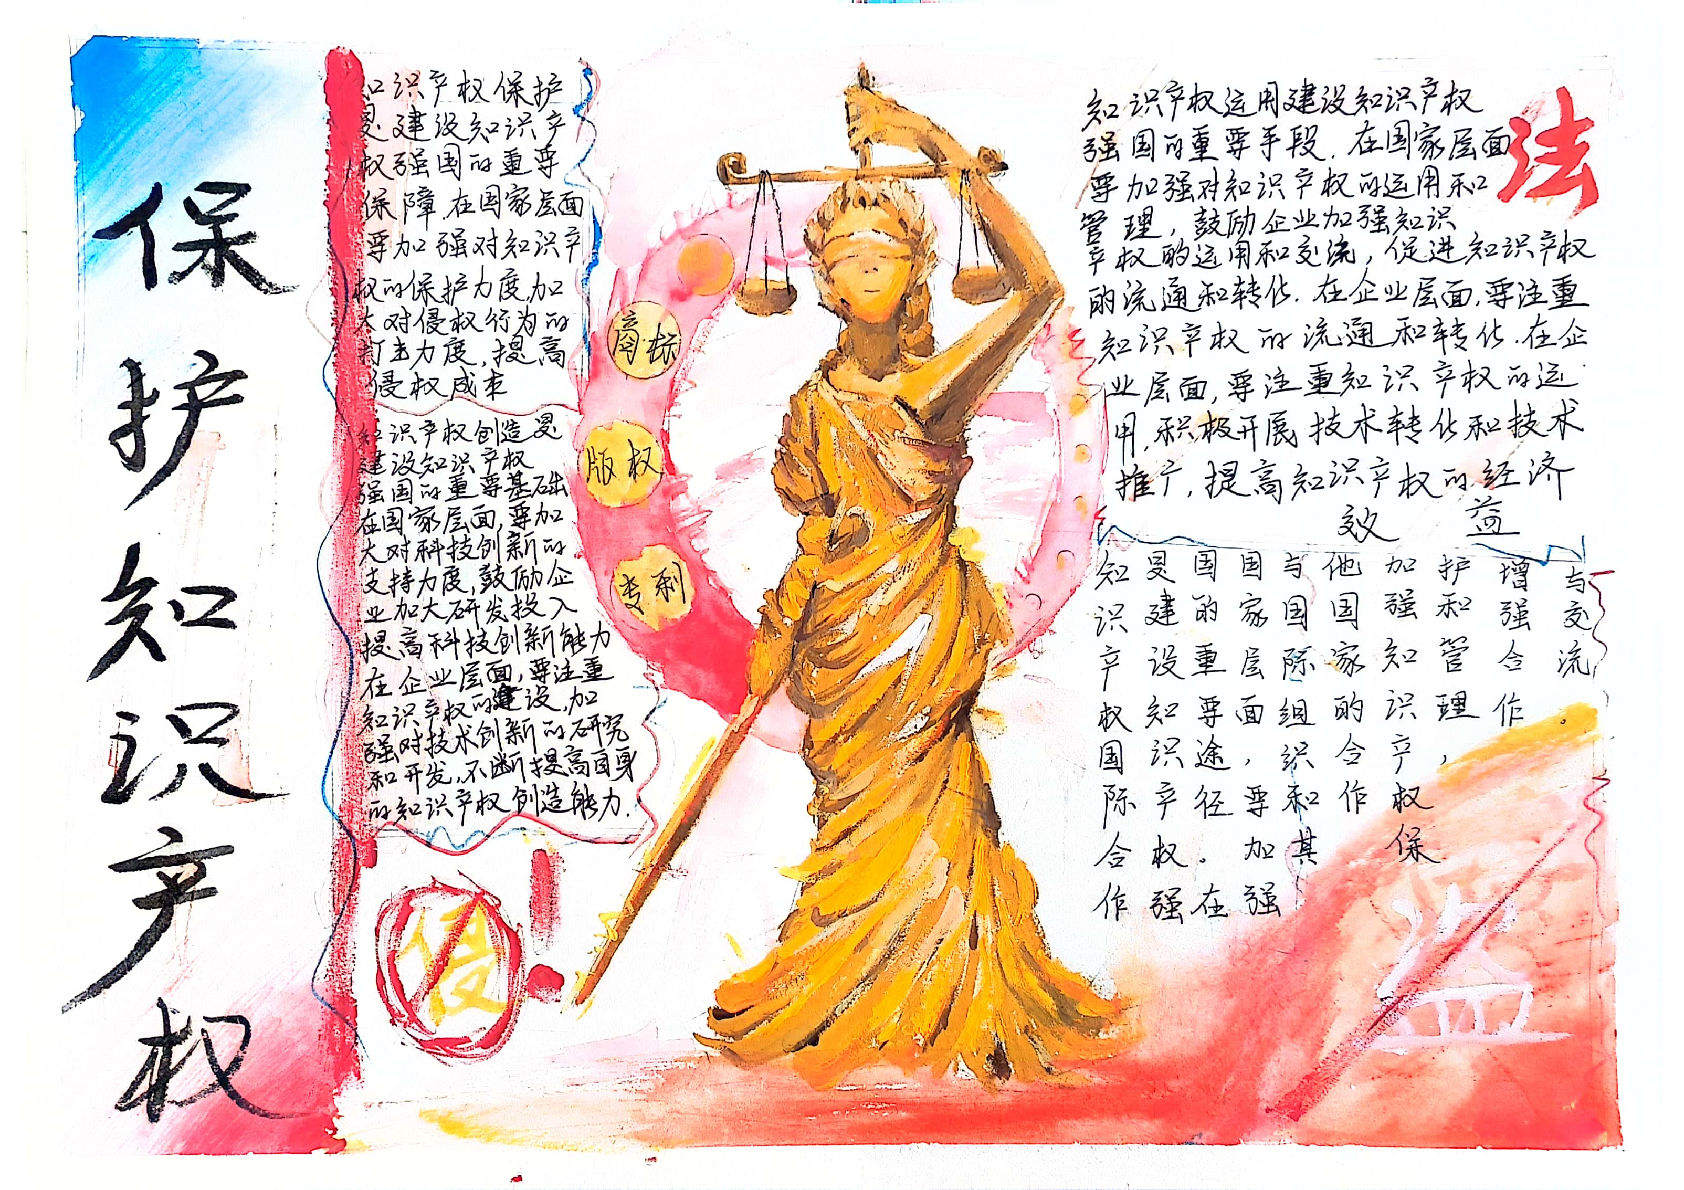 保护知识产权
知识产权保护
是建设知识产
权强国的重要
保障.在国家层面
要加强对知识产
权的保护力度,加
大对侵权行为的
打击力度,提高
侵权成本
知识产权创造是
建设知识产权
强国的重要基础
在国家层面,要加
大对科技创新的
支持力度,鼓励企
业加大研发投入
提高科技创新能力
在企业层面,要注重
知识产权的建设,加
强对技术创新的研究
和开发,不断提高自身
的知识产权创造能力.
侵!
商标
版权
专利
知识产权运用建设知识产权
强国的重要手段.在国家层面
要加强对知识产权的运用和
管理,鼓励企业加强知识
产权的运用和交流,促进知识产权
的流通和转化.在企业层面,要注重
知识产权的流通和转化.在企
业层面,要注重知识产权的运
用,积极开展技术转化和技术
推广,提高知识产权的经济
效益
法
知识产权国际合作
是建设知识产权强
国的重要途径。在
国家层面,要加强
与国际组织和其
他国家的合作
加强知识产权保
护和管理,
增强合作
与交流.
盗